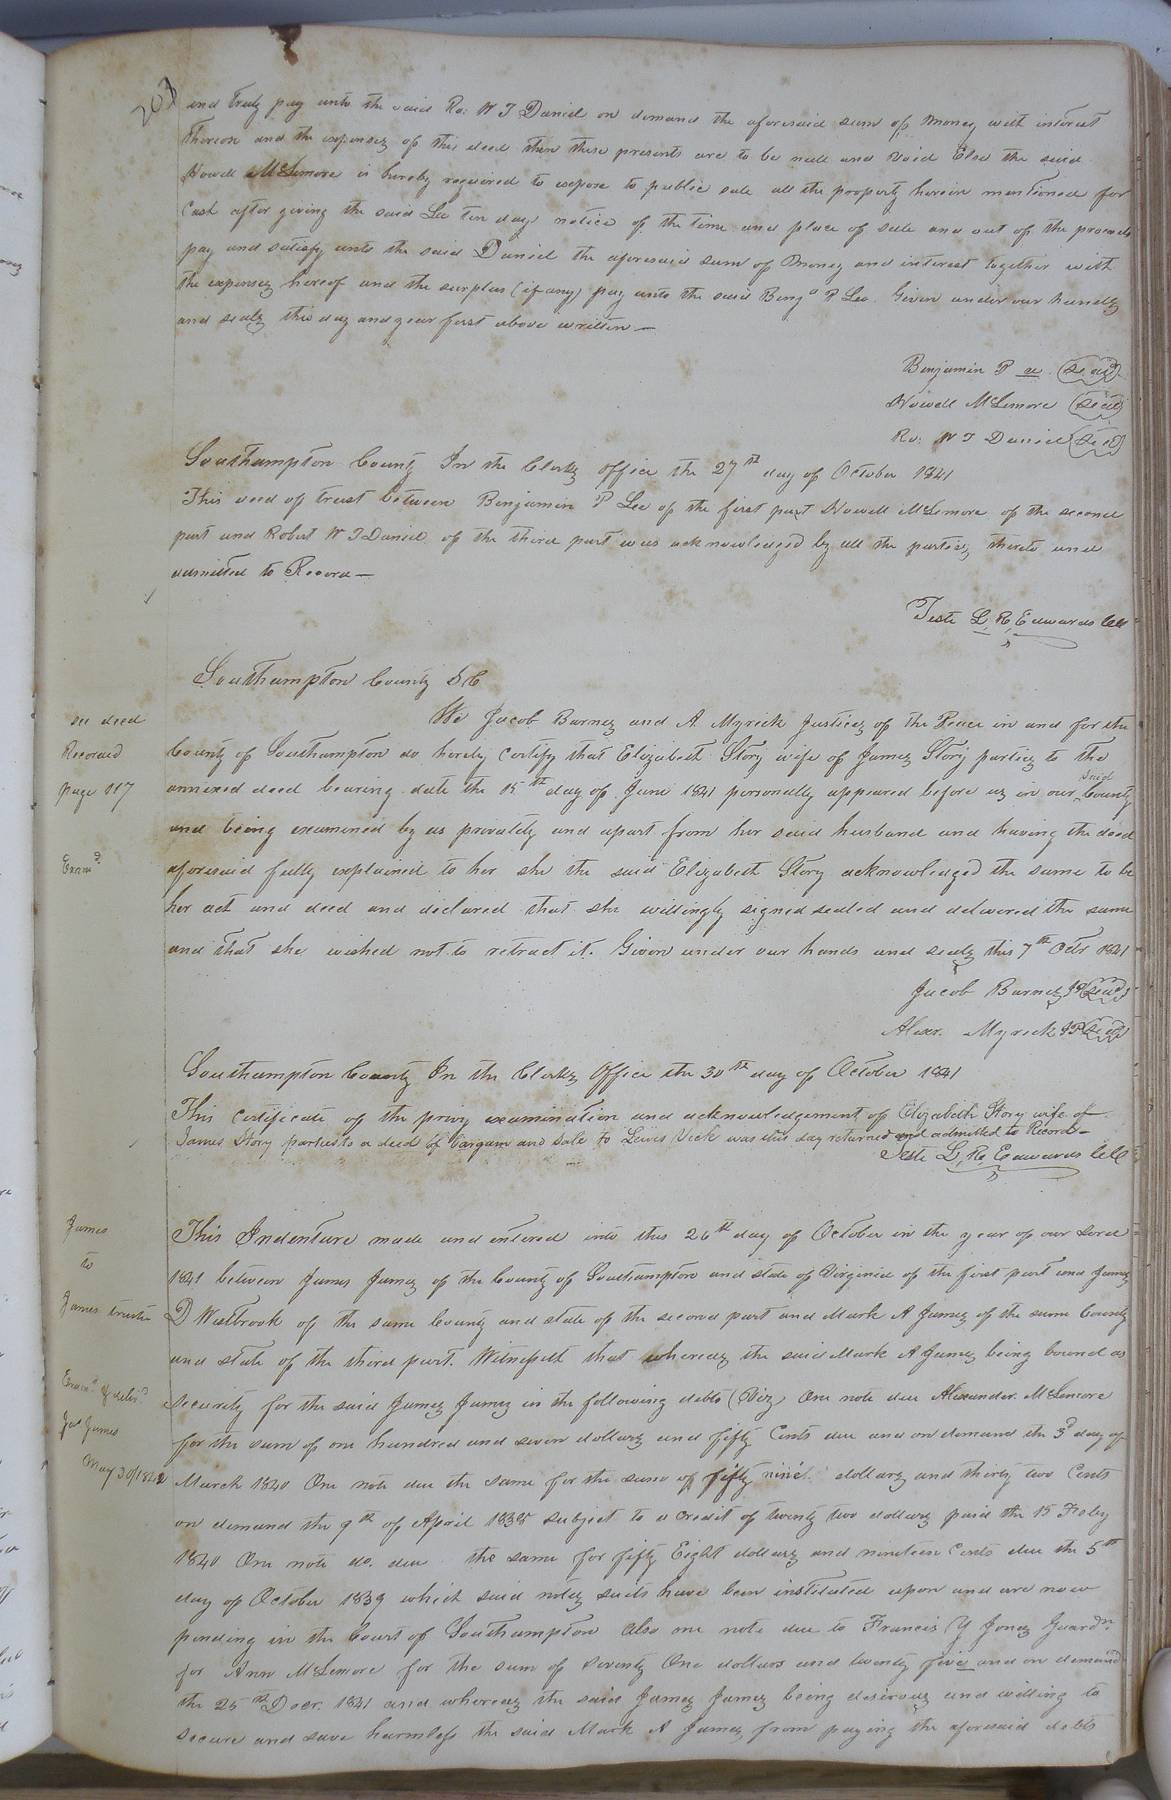 203
and truly pay unto the said Ro: W T Daniel on demand the aforesaid sum of money with interest
thereon and the expenses of this deed then these presents are to be null and void Else the said
Howell McLemore is hereby required to expose to public sale all the property herein mentioned for
Cash after giving the said Lee ten days notice of the time and place of sale and out of the proceeds
pay and satisfy unto the said Daniel the aforesaid sum of money and interest together with
the expenses hereof and the surplus (if any) pay unto the said Benja P Lee. Given under our hands
and seals this day and year first above written —
Benjamin P Lee (Seal)
Howell McLemore (Seal)
Ro: W T Daniel (Seal)
Southampton County In the Clerks office the 27th day of October 1841
This deed of trust between Benjamin P Lee of the first part Howell McLemore of the second
part and Robert W T Daniel of the third part was acknowledged by all the parties thereto and
admitted to Record —
Teste L. R. Edwards
Southampton County
We Jacob Barnes and A. Myrick Justices of the Peace in and for the
see deed
Recorded
page 117
Examd
County of Southampton do hereby certify that Elizabeth Story wife of James Story parties to the
annexed deed bearing date the 15th day of June 1841 personally appeared before us in our said County
and being examined by us privately and apart from her said husband and having the deed
aforesaid fully explained to her she the said Elizabeth Story acknowledged the same to be
her act and deed and declared that she willingly signed sealed and delivered the same
and that she wished not to retract it. Given under our hands and seals this 7th Octr 1841
Jacob Barnes JP (Seal)
Alexr. Myrick JP (Seal)
Southampton County In the Clerks Office the 30th day of October 1841
This certificate of the privy examination and acknowledgement of Elizabeth Story wife of
James Story parties to a deed of bargain and sale to Lewis Vick was this day returned and admitted to Record —
Teste L. R. Edwards
James
to
James trustee
Examd & delivd
Jas James
May 30/1842
This Indenture made and entered into this 26th day of October in the year of our Lord
1841 between James James of the County of Southampton and state of Virginia of the first part and James
D Westbrook of the same County and state of the second part and Mark A James of the same County
and state of the third part. Witnesseth that whereas the said Mark A James being bound as
security for the said James James in the following debts (Viz) One note due Alexander McLemore
for the sum of one hundred and seven dollars and fifty Cents due and on demand the 3d day of
March 1840 One note due the same for the sum of fifty nine dollars and thirty two Cents
on demand the 9th of April 1838 subject to a credit of twenty two dollars paid the 15 Feby
1840 One note do. due the same for fifty Eight dollars and nineteen Cents due the 5th
day of October 1839 which said notes suits have been instituted upon and are now
pending in the Court of Southampton also one note due to Francis Y Jones Guardn
for Ann McLemore for the sum of seventy One dollars and twenty five and on demand
the 25th Decr. 1841 and whereas the said James James being desirous and willing to
secure and save harmless the said Mark A James from paying the aforesaid debts